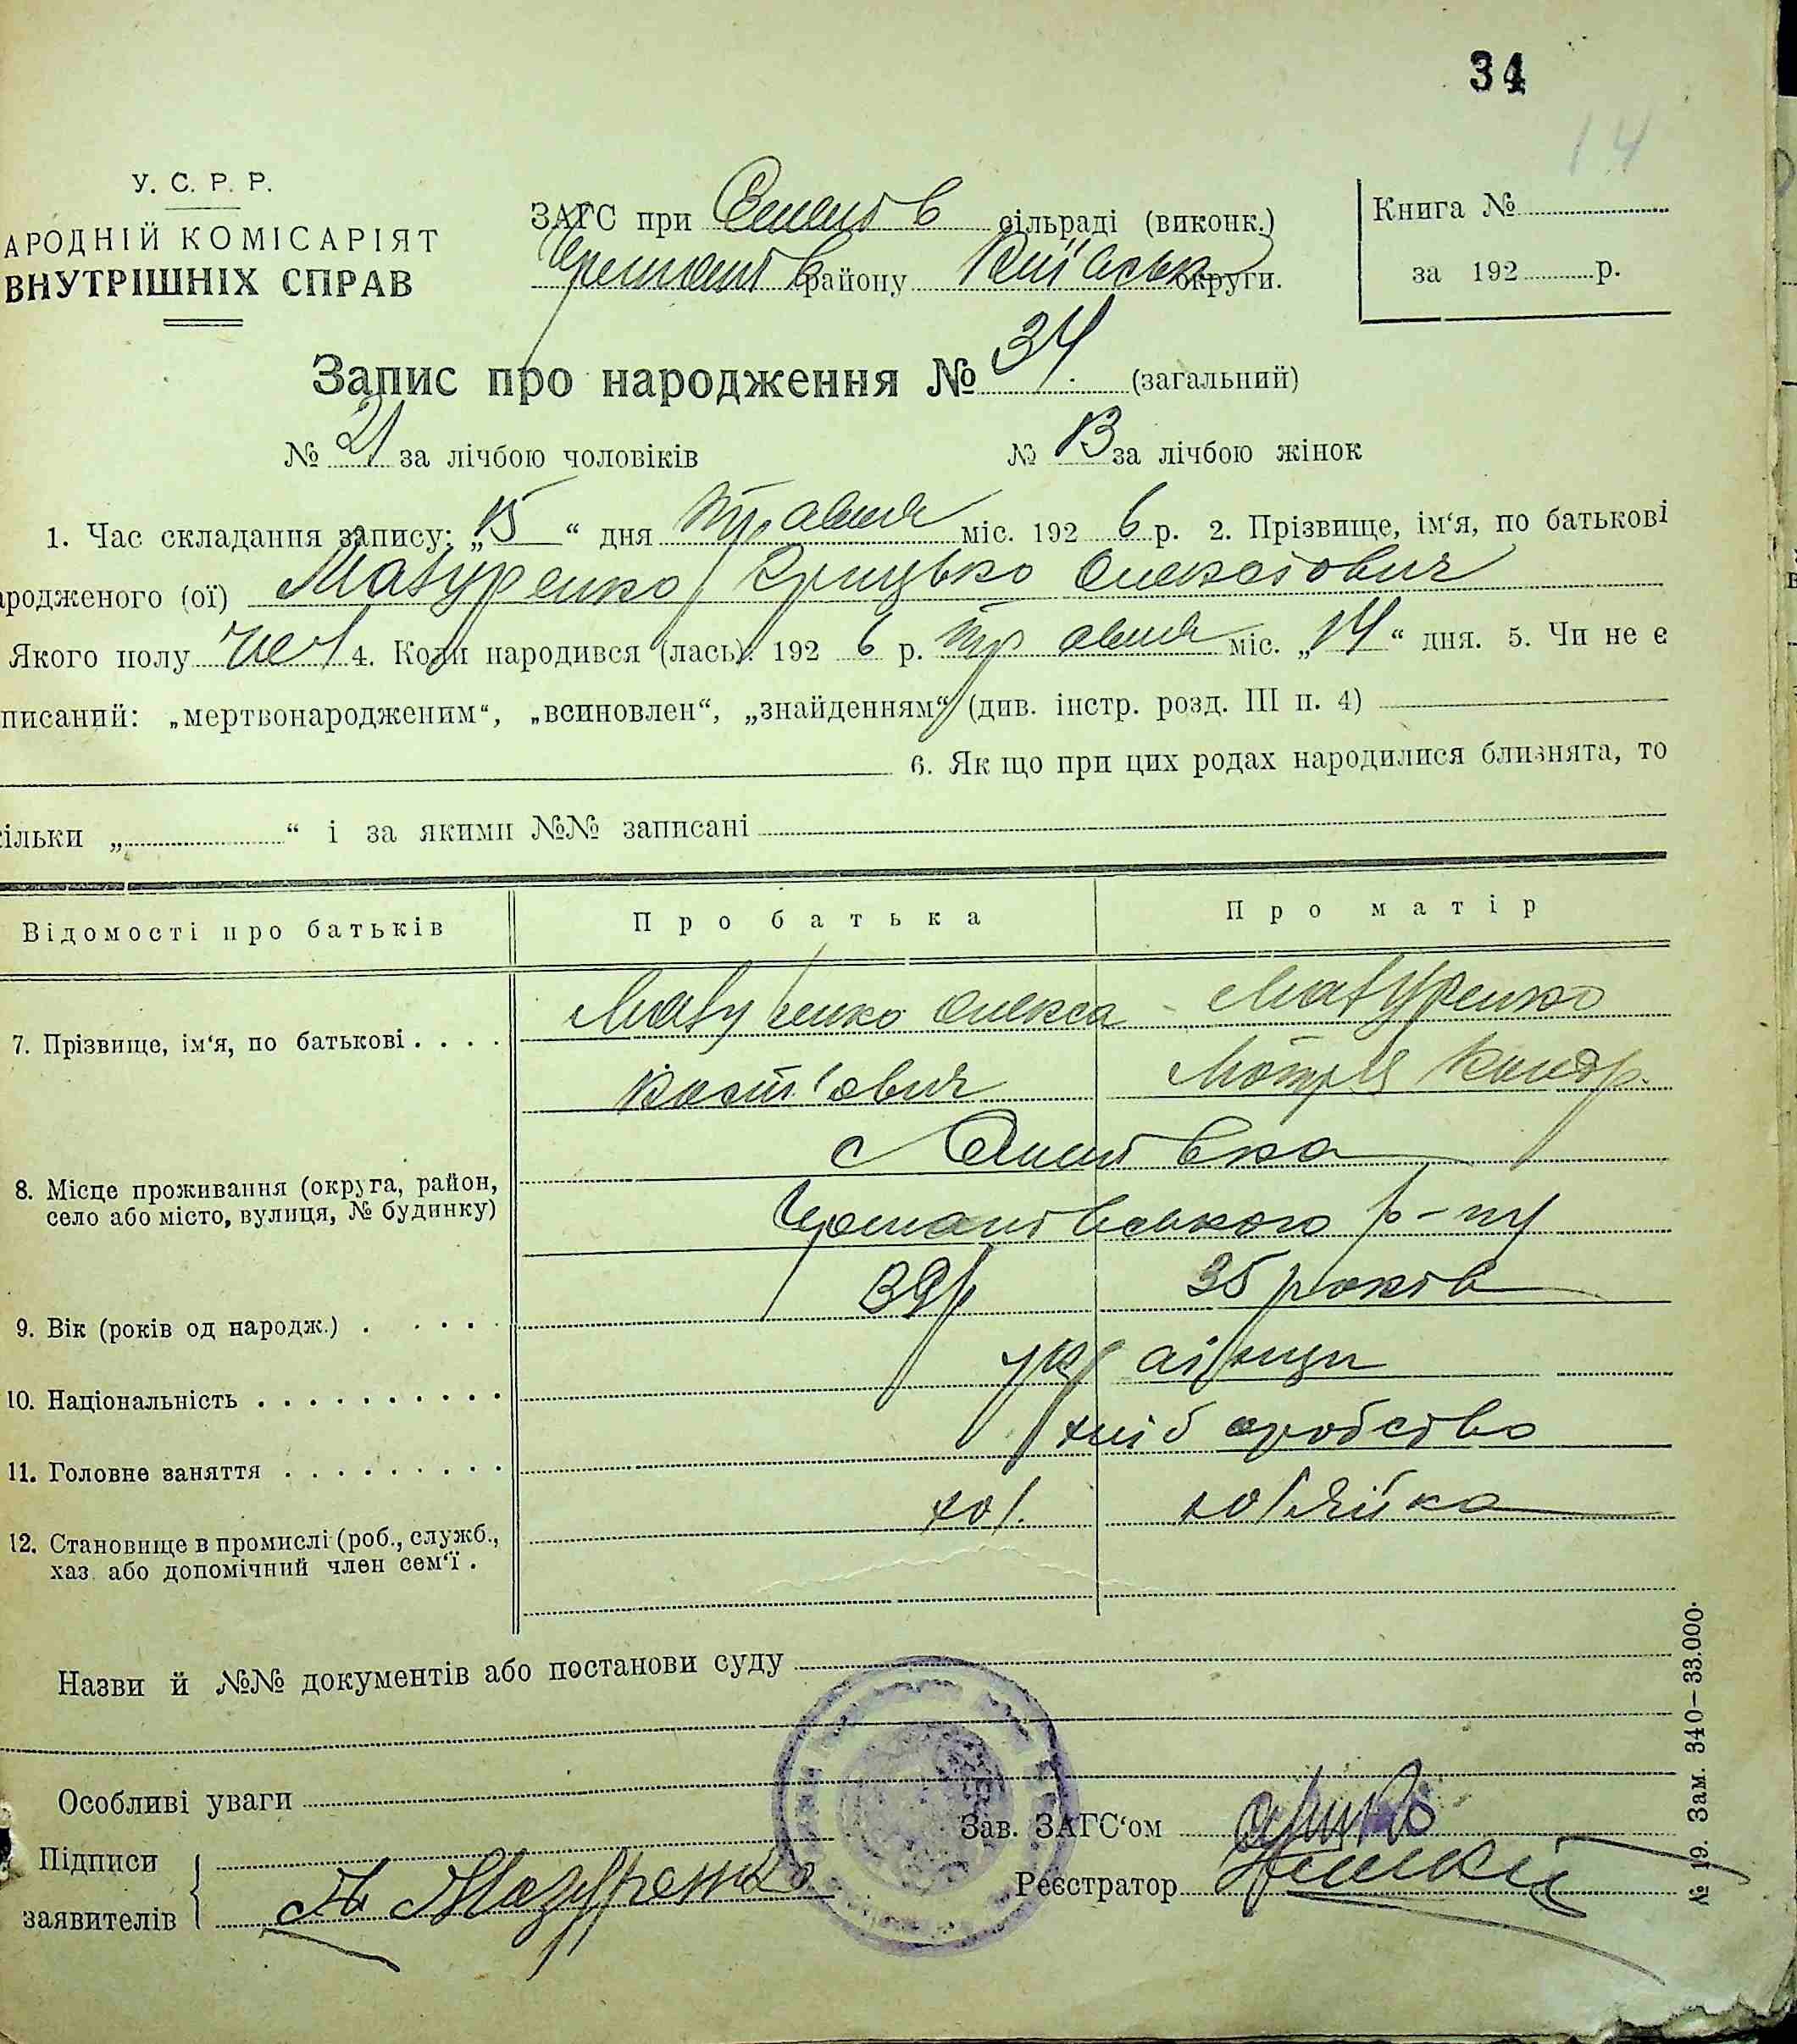 34
14
У. С. Р. Р.
АРОДНІЙ КОМІСАРІЯТ
ВНУТРІШНІХ СПРАВ
ЗАГС при сільраді (виконк.)
району Київськ округи.
Книга №
за 192 р.
Запис про народження № 34. (загальний)
№ 21 за лічбою чоловіків
№ 13 за лічбою жінок
1. Час складання запису: „15“ дня травня міс. 192 6 р. 2. Прізвище, ім‘я, по батькові
ародженого (ої) Мазуренко Грицько Олексович
Якого полу чол 4. Коли народився (лась): 192 6 р. травня міс. „14“ дня. 5. Чи не є
писаний: „мертвонародженим“, „всиновлен“, „знайденням“ (див. інстр. розд. III п. 4)
6. Як що при цих родах народилися близнята, то
ільки „ “ і за якими №№ записані
Відомості про батьків
Про батька
Про матір
7. Прізвище, ім‘я, по батькові . . . .
Мазуренко Олекса
Мазуренко
Мотря
8. Місце проживання (округа, район,
село або місто, вулиця, № будинку)
с
р-ну
9. Вік (років од народж.) . . . . .
39 р
35 років
10. Національність . . . . . . . . . .
українци
11. Головне заняття . . . . . . . . .
хліборобство
12. Становище в промислі (роб., служб.,
хаз. або допомічний член сем‘ї .
хоз.
хозяйка
Назви й №№ документів або постанови суду
Особливі уваги
Підписи
заявителів
А Мазуренко
Зав. ЗАГС‘ом
Реєстратор
№ 19. Зам. 340—33.000.